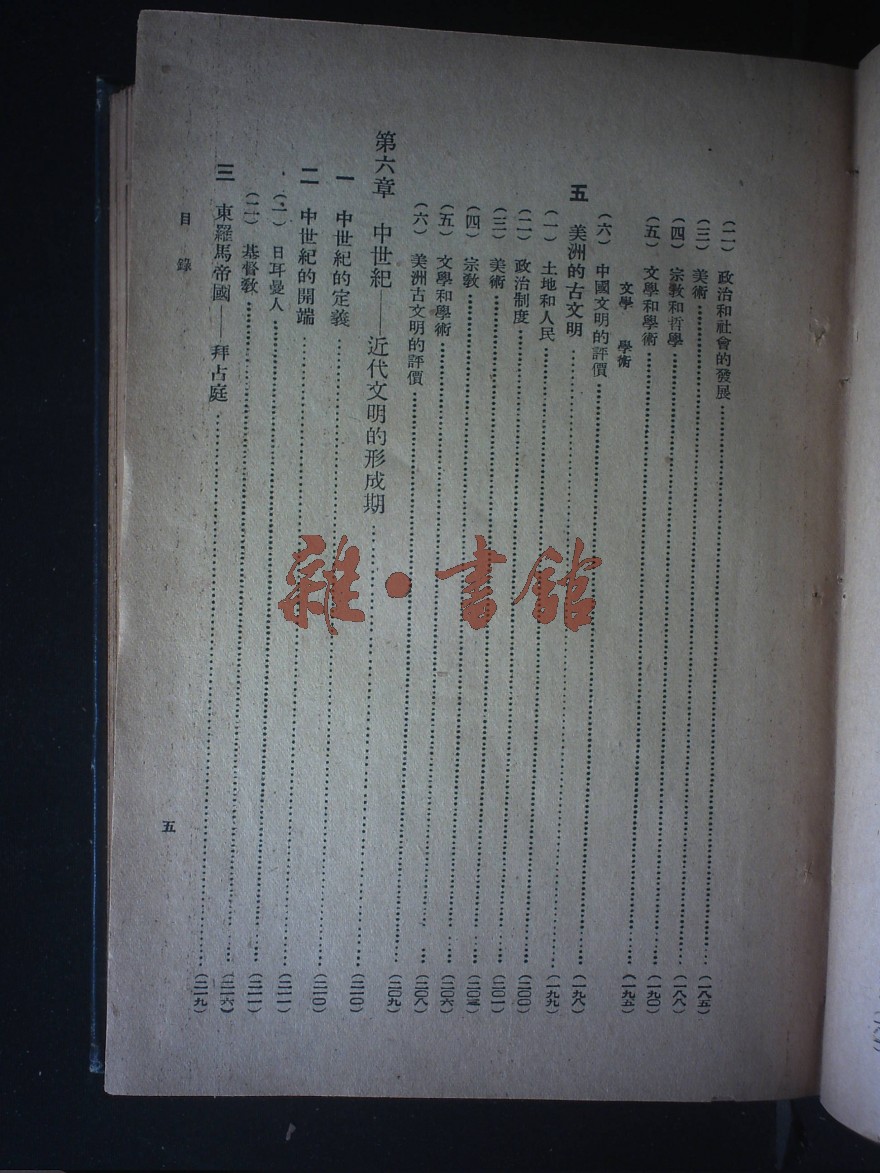 (二) 政治和社會的發展……(一八五)
(三) 美術……(一八八)
(四) 宗教和哲學……(一九〇)
(五) 文學和學術……(一九五)
文學 學術
(六) 中國文明的評價……(一九八)
五 美洲的古文明……(一九九)
(一) 土地和人民……(二〇〇)
(二) 政治制度……(二〇一)
(三) 美術……(二〇三)
(四) 宗教……(二〇六)
(五) 文學和學術……(二〇八)
(六) 美洲古文明的評價……(二〇九)
第六章 中世紀——近代文明的形成期……(二一〇)
一 中世紀的定義……(二一〇)
二 中世紀的開端……(二一一)
(一) 日耳曼人……(二一一)
(二) 基督教……(二一六)
三 東羅馬帝國——拜占庭……(二一九)
目錄
五
雜·書館